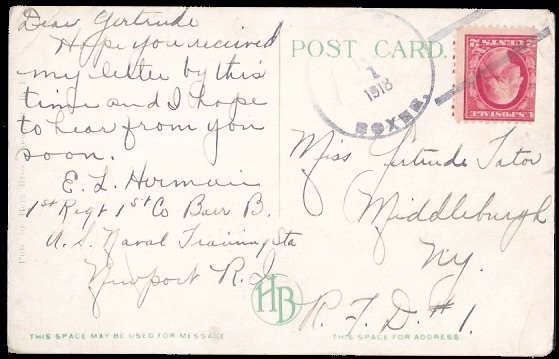 Dear Gertrude
Hope you recieved
my letter by this
time and I hope
to hear from you
soon.
E. L. Hermain
1st Regt 1st Co Barr B.
U. S. Naval Training Sta
Newport R. I.
THIS SPACE MAY BE USED FOR MESSAGE
POST CARD.
1
1918
BOXER.
U.S. POSTAGE
2 CENTS 2
Miss Gertrude Tator
Middleburgh
NY.
R. F. D. #1.
HB
THIS SPACE FOR ADDRESS